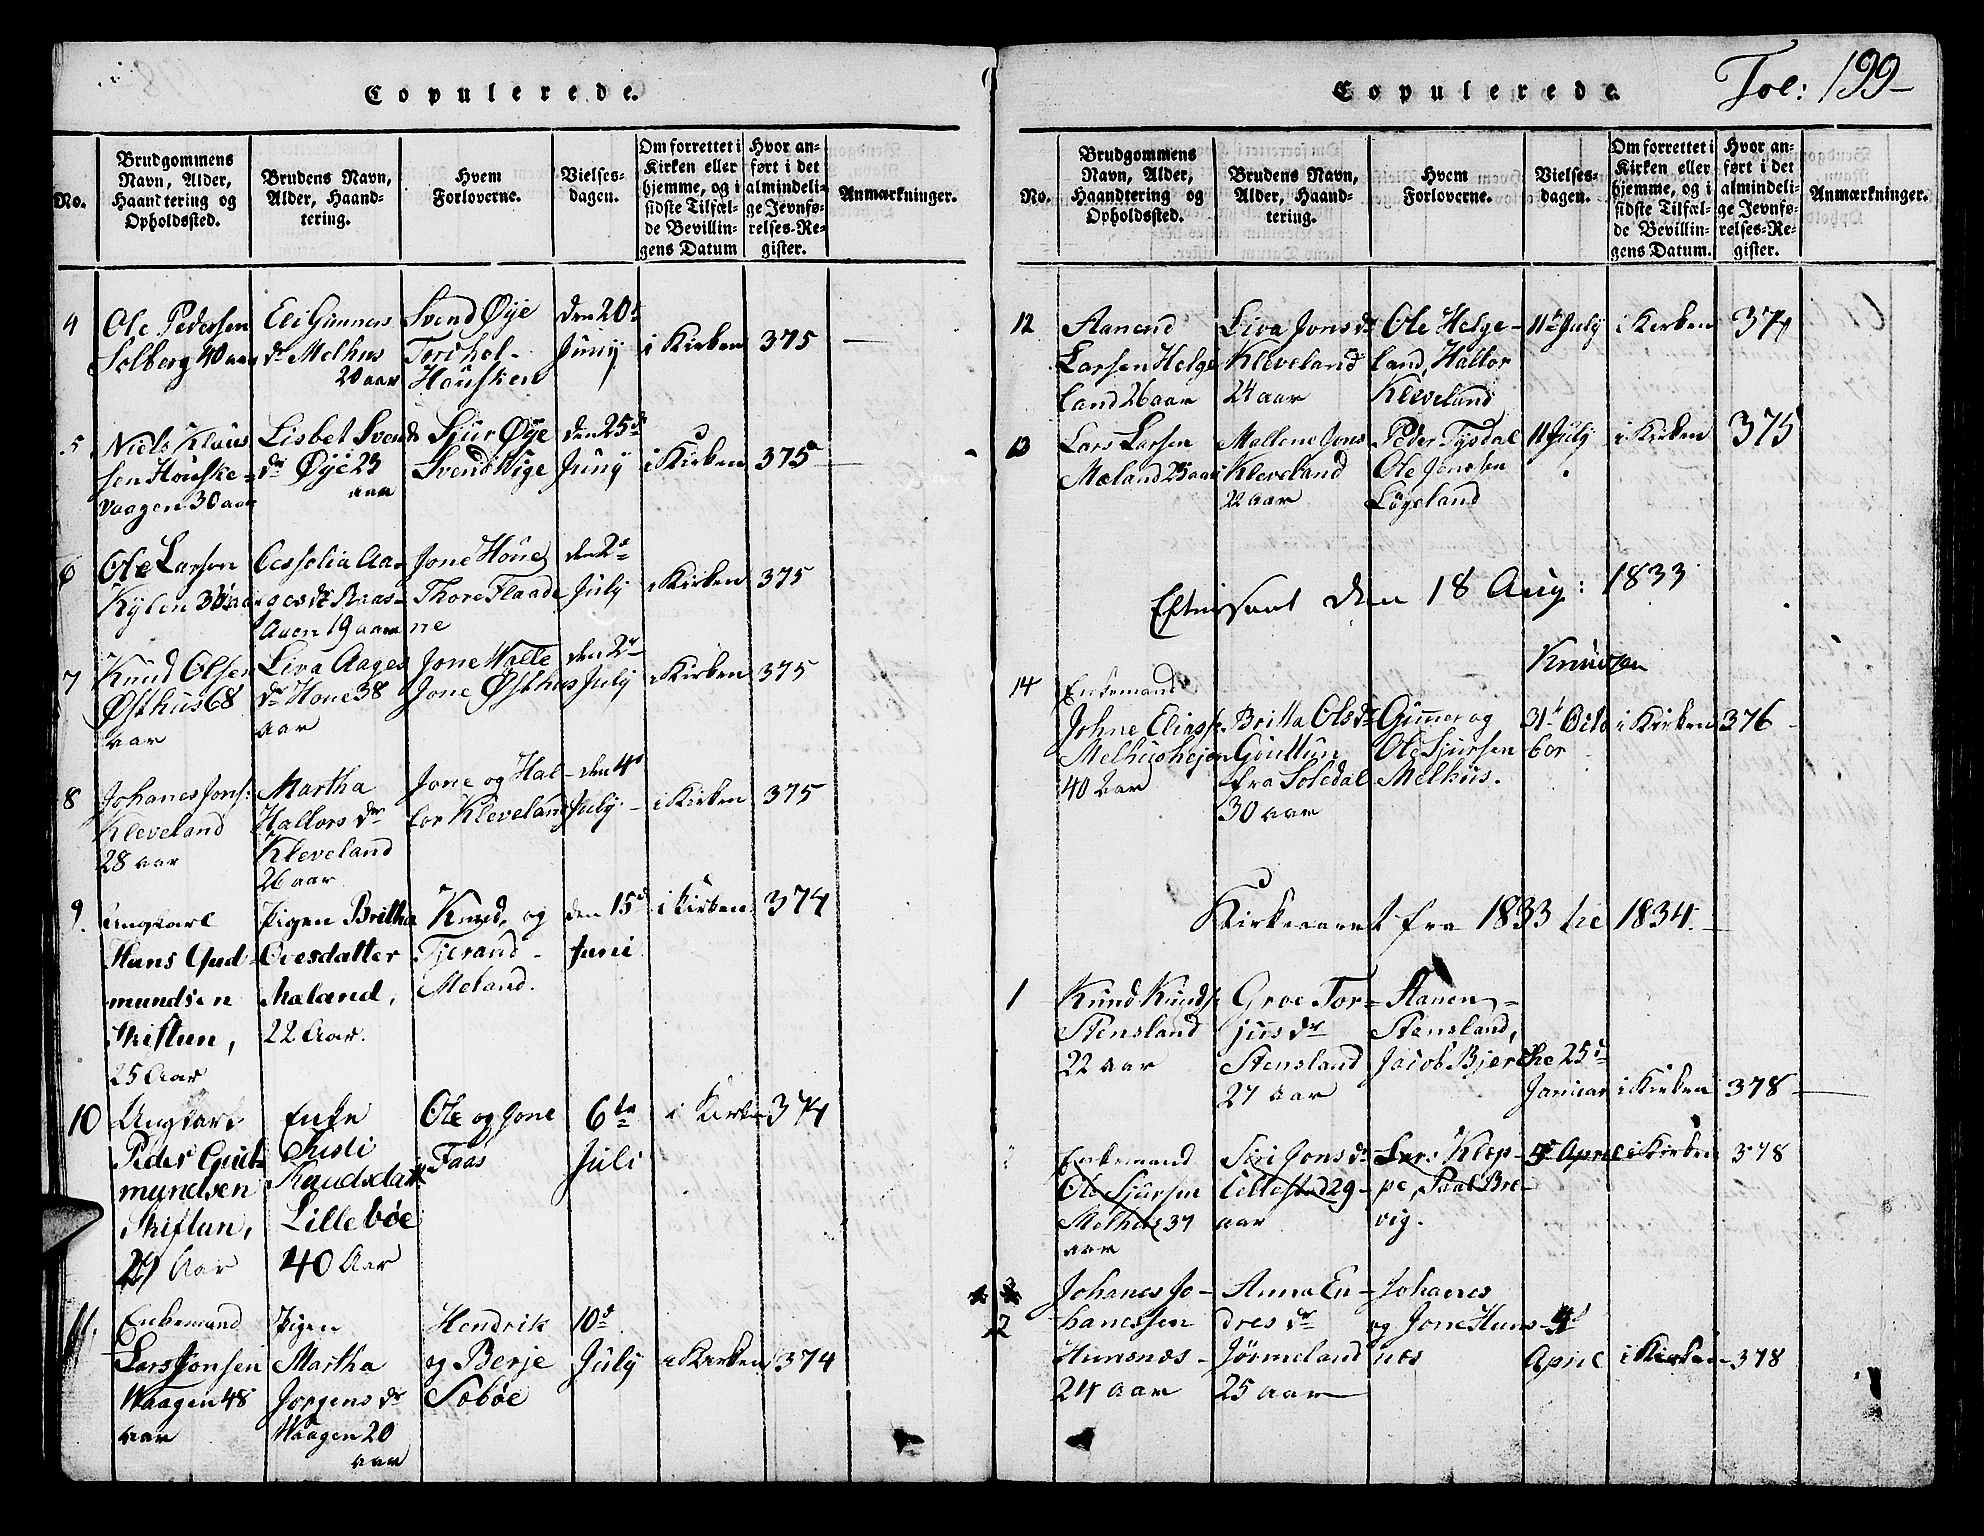 Copulerede.
No.
Brudgommens
Navn, Alder,
Haandtering og
Opholdssted.
Brudens Navn,
Alder, Haand-
tering.
Hvem
Forloverne.
Vielses-
dagen.
Om forrettet i
Kirken eller
hjemme, og i
sidste Tilfæl-
de Bevillin-
gens Datum
Hvor an-
ført i det
almindeli-
ge Jevnfø-
relses-Re-
gister.
Anmærkninger.
4
Ole Pedersen
Solberg 40 aar
Eli Gunners
dr Melhus
20 aar
Svend Øye
Torchel
Housken
den 20d
Juny
i Kirken
375
5
Niels Klaus
sen Houske-
vaagen 30 aar
Lisbet Svend
dr Øye 23
aar
Sjur Øye
Svend Hige
den 25d
Juny
i Kirken
375
6
Ole Larsen
Kylen 30 aar
Cessolia Aa-
gesdr Raas-
Aaen 19 aar
Jone Houe
Thore Flaade
ne
den 2d
July
i Kirken
375
7
Knud Olsen
Østhus 68
aar
Liva Aages
dr Houe 38
aar
Jone Walte
Jone Østhus
den 2d
July
i Kirken
375
8
Johanes Jons:
Kleveland
28 aar
Martha
Hallors dr
Kleveland
26 aar
Jone og Hal-
lor Kleveland
den 4d
July
i Kirken
375
9.
Ungkarl
Hans Gud-
mundsen
Skiftun,
25 Aar
Pigen Britha
Ovesdatter
Mæland,
22 Aar.
Knud, og
Tjerand
Meland.
den 15d
Juni
i Kirken
374
10
Ungkarl
Peder Gut-
mundsen
Skiftun,
29 Aar
Enke
Susli
Knudsdatt
Lillebøe
40 Aar
Ole og Jone
Faas
6te
Juli
i Kirken
374
11.
Enkemand
Lars Jonsen
Waagen 48
aar
Pigen
Martha
Jorgens dr
Waagen 20
aar
Hendrik
og Berje
Søbøe
10d
July
i Kirken
374
Copulerede.
Fol: 199-
No.
Brudgommens
Navn, Alder,
Haandtering og
Opholdssted.
Brudens Navn,
Alder, Haand-
tering.
Hvem
Forloverne.
Vielses-
dagen.
Om forrettet i
Kirken eller
hjemme, og i
sidste Tilfæl-
de Bevillin-
gens Datum.
Hvor an-
ført i det
almindeli-
ge Jevnfø-
relses-Re-
gister.
Anmærkninger.
12
Aanend
Larsen Helge
land 26 aar
Liva Jons dr
Kleveland
24 aar
Ole Helge-
land, Hallor
Kleveland
11te July
i Kirken
374
13
Lars Larsen
Mæland 25 aar
Mallene Jons
Kleveland
22 aar
Peder Tysdal
Ole Jonssen
Løgeland
11 July
i Kirken
375
Efterseet den 18 Aug: 1833
Knudsen
14
Enkemand
Johne Eliass.
Melhushejen
40 Aar
Britta Ols dr
Gouttun
fra Soledal
30 aar
Gunner og
Ole Sjursen
Melhus.
31t Octo
ber
i Kirken
376
Kirkeaaret fra 1833 til 1834.
1
Knud Knuds.
Stensland
22 aar
Groe Tor-
jus dr
Stensland
27 aar
Aanen
Stensland,
Jacob Bjer
the 25d
Januar
i Kirken
378
Enkemand
Ole Sjursen
Melhus 37
aar
Siri Jons dr
Lillestød 29
aar
Lars Klep-
pe, Paal Bre-
vig.
5 April
i Kirken
378
2
Johanes Jo-
hanessen
Hunsnæs
24 aar
Anna En-
dres dr
Jørmeland
25 aar
Johanes
og Jone Huns-
næs
4d
April
i Kirken
378